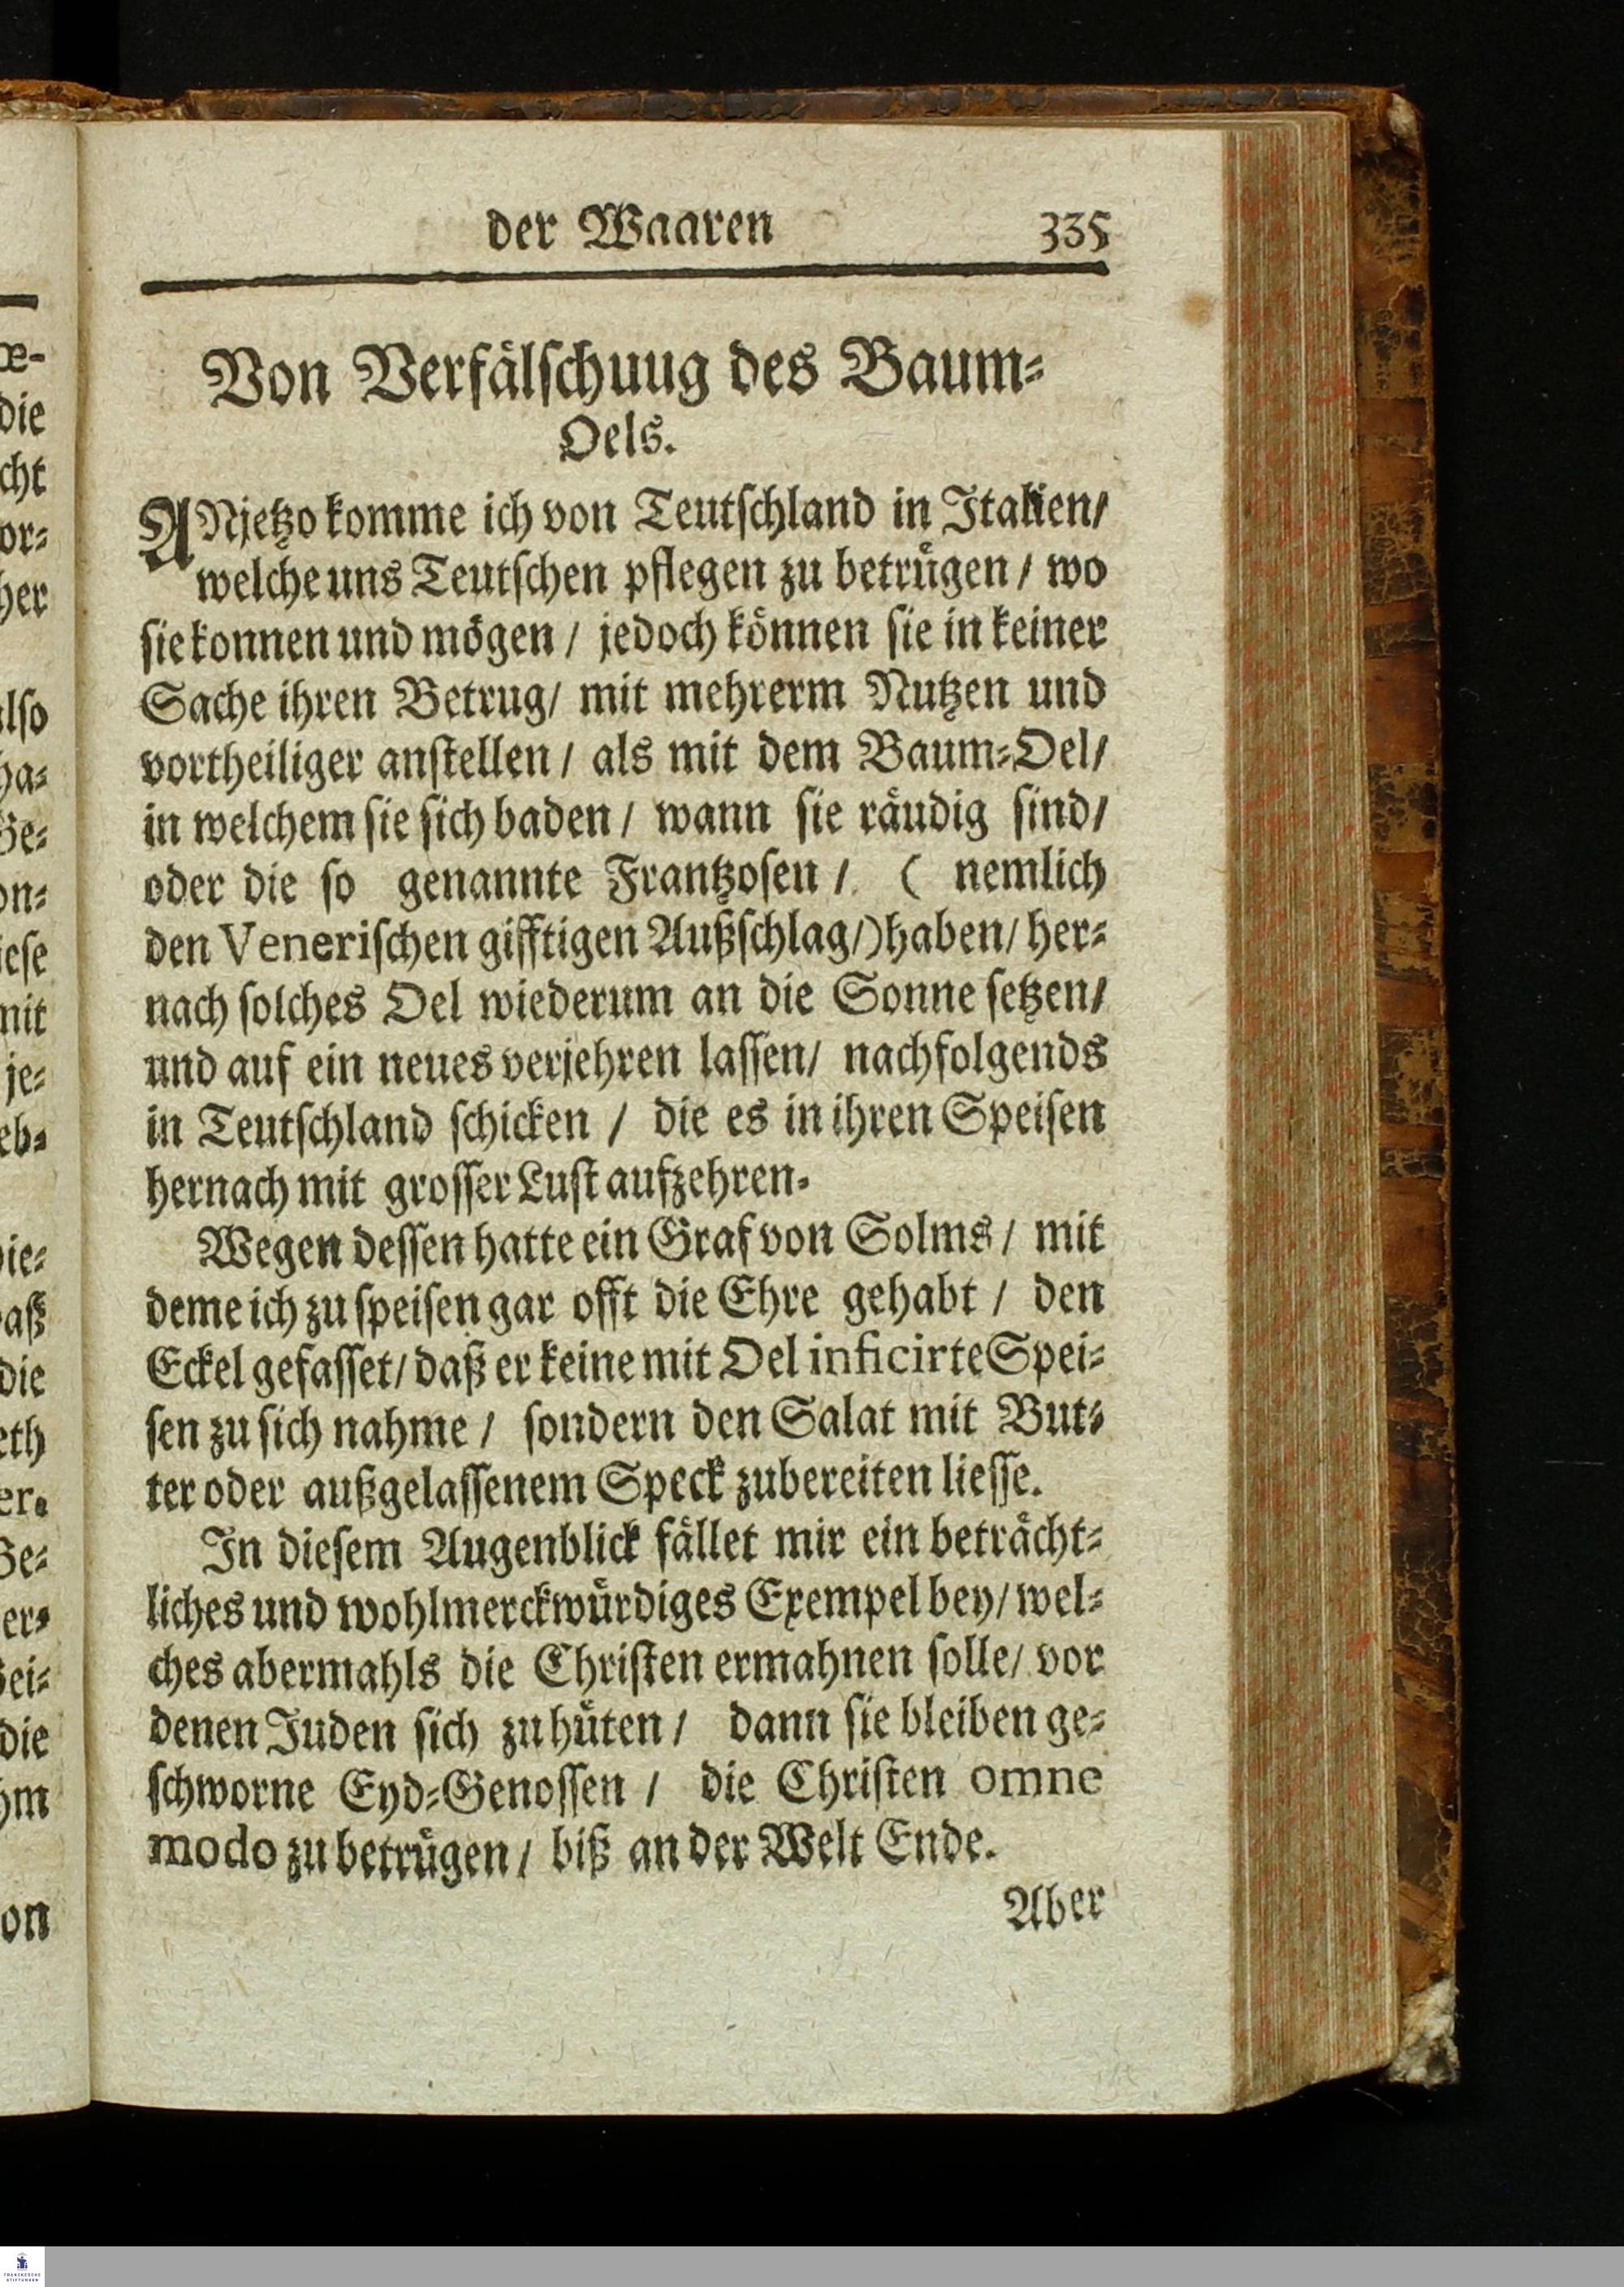 der Waaren 335
Von Verfälſchuug des Baum⸗
Oels.
ANjetzo komme ich von Teutſchland in Italien/
welche uns Teutſchen pflegen zu betrügen / wo
ſie konnen und mögen / jedoch können ſie in keiner
Sache ihren Betrug/ mit mehrerm Nutzen und
vortheiliger anſtellen / als mit dem Baum⸗Oel/
in welchem ſie ſich baden / wann ſie räudig ſind/
oder die ſo genannte Frantzoſen / ( nemlich
den Veneriſchen gifftigen Außſchlag/) haben/ her⸗
nach ſolches Oel wiederum an die Sonne ſetzen/
und auf ein neues verjehren laſſen/ nachfolgends
in Teutſchland ſchicken / die es in ihren Speiſen
hernach mit groſſer Luſt aufzehren.
Wegen deſſen hatte ein Graf von Solms / mit
deme ich zu ſpeiſen gar offt die Ehre gehabt / den
Eckel gefaſſet/ daß er keine mit Oel inficirte Spei⸗
ſen zu ſich nahme / ſondern den Salat mit But⸗
ter oder außgelaſſenem Speck zubereiten lieſſe.
In dieſem Augenblick fället mir ein beträcht⸗
liches und wohlmerckwürdiges Exempel bey/ wel⸗
ches abermahls die Chriſten ermahnen ſolle/ vor
denen Juden ſich zu hüten / dann ſie bleiben ge⸗
ſchworne Eyd⸗Genoſſen / die Chriſten omne
modo zu betrügen / biß an der Welt Ende.
Aber
FRANCKESCHE
STIFTUNGEN